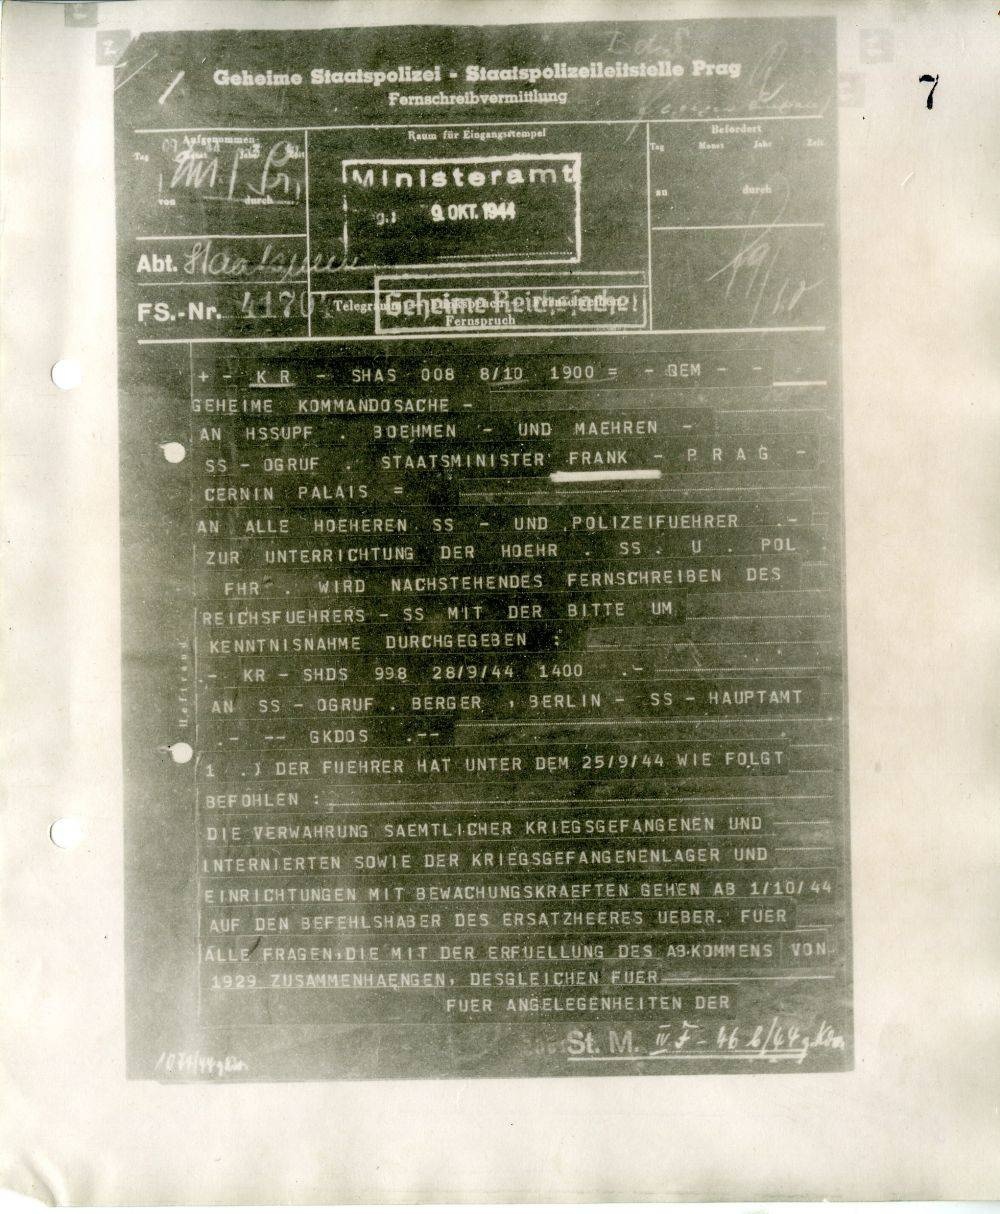 7
Geheime Staatspolizei - Staatspolizeileitstelle Prag
Fernschreibvermittlung
Aufgenommen
Tag Monat Jahr Zeit
von durch
Raum für Eingangsstempel
Ministeramt
9. OKT. 1944
Befördert
Tag Monat Jahr Zeit
an durch
Abt.
FS.-Nr. 4170
Telegramm - Funkspruch - Fernschreiben
Fernspruch
Geheime Reichssache!
+ - KR - SHAS 008 8/10 1900 = - QEM - -
GEHEIME KOMMANDOSACHE -
AN HSSUPF . BOEHMEN - UND MAEHREN -
SS - OGRUF . STAATSMINISTER FRANK - P R A G -
CERNIN PALAIS =
AN ALLE HOEHEREN SS - UND POLIZEIFUEHRER .-
ZUR UNTERRICHTUNG DER HOEHR . SS . U . POL .
FHR . WIRD NACHSTEHENDES FERNSCHREIBEN DES
REICHSFUEHRERS - SS MIT DER BITTE UM
KENNTNISNAHME DURCHGEGEBEN :
.- KR - SHDS 998 28/9/44 1400 .-
AN SS - OGRUF . BERGER , BERLIN - SS - HAUPTAMT
.- -- GKDOS .--
1 .) DER FUEHRER HAT UNTER DEM 25/9/44 WIE FOLGT
BEFOHLEN :
DIE VERWAHRUNG SAEMTLICHER KRIEGSGEFANGENEN UND
INTERNIERTEN SOWIE DER KRIEGSGEFANGENENLAGER UND
EINRICHTUNGEN MIT BEWACHUNGSKRAEFTEN GEHEN AB 1/10/44
AUF DEN BEFEHLSHABER DES ERSATZHEERES UEBER. FUER
ALLE FRAGEN,DIE MIT DER ERFUELLUNG DES AB.KOMMENS VON
1929 ZUSAMMENHAENGEN, DESGLEICHEN FUER
FUER ANGELEGENHEITEN DER
Heftrand
St. M. IV F - 46 b/44 g.Kdos.